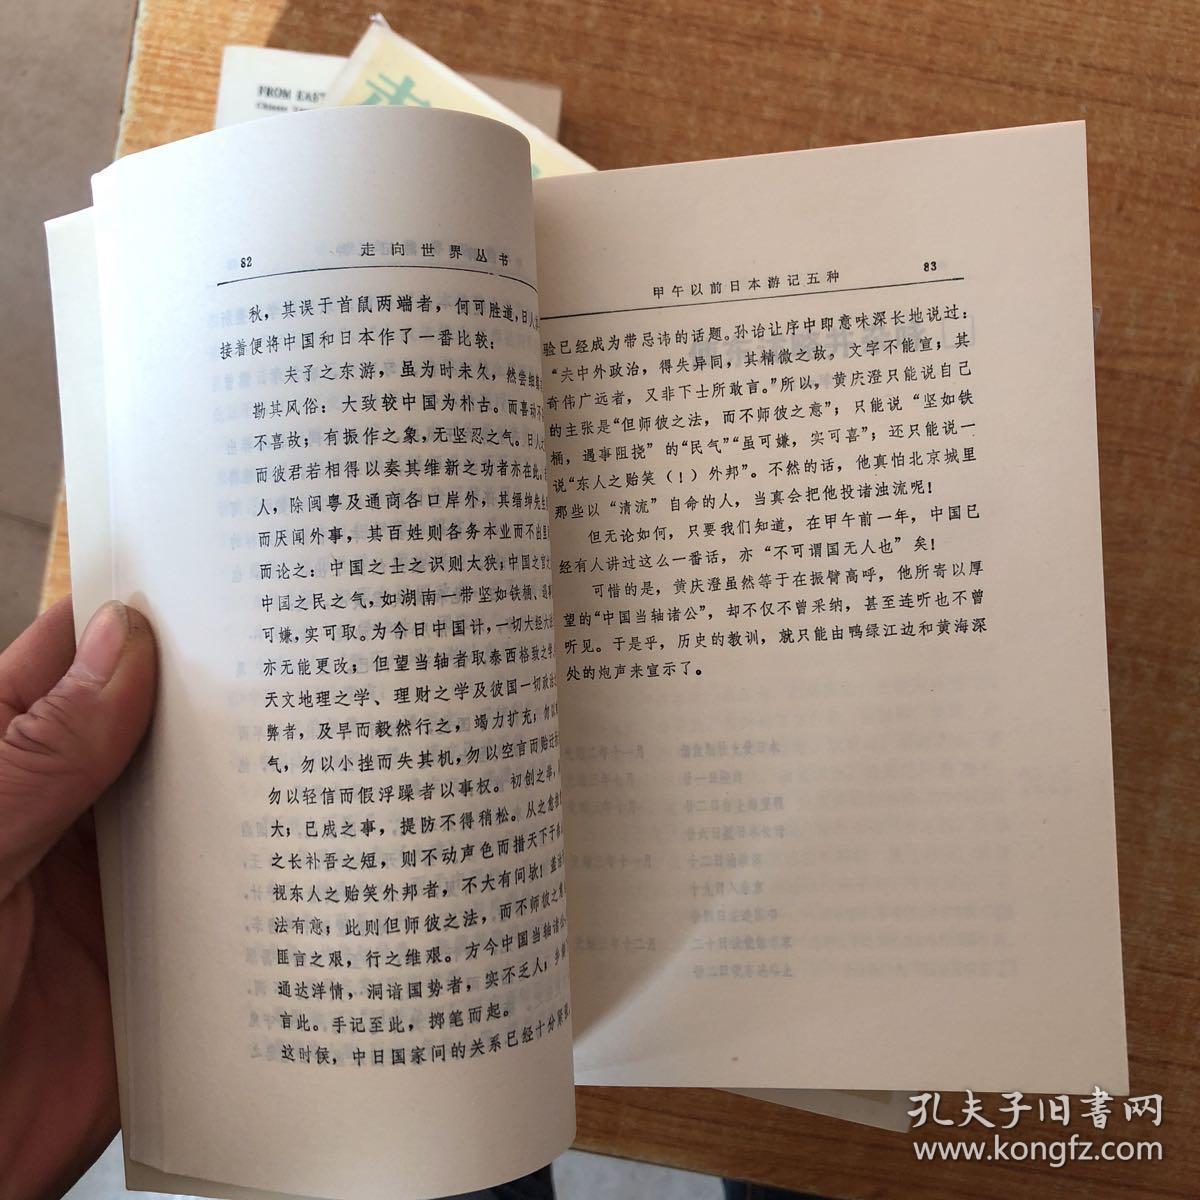 FROM EAST
走
82 走向世界丛书
秋，其误于首鼠两端者，何可胜道，日人
接着便将中国和日本作了一番比较：
夫子之东游，虽为时未久，然尝细
勘其风俗：大致较中国为朴古。而喜动不
不喜故；有振作之象，无坚忍之气。日人
而彼君若相得以奏其维新之功者亦在此。
人，除闽粤及通商各口岸外，其缙绅先生
而厌闻外事，其百姓则各务本业而不出里
而论之：中国之士之识则太狭；中国之官之
中国之民之气，如湖南一带坚如铁桶、遇事
可嫌，实可取。为今日中国计，一切大经大
亦无能更改；但望当轴者取泰西格致之学、
天文地理之学、理财之学及彼国一切政治
弊者，及早而毅然行之，竭力扩充；勿以
气，勿以小挫而失其机，勿以空言而贻迂
勿以轻信而假浮躁者以事权。初创之举，
大；已成之事，提防不得稍松。从之愈
之长补吾之短，则不动声色而措天下于
视东人之贻笑外邦者，不大有间欤！盖
法有意；此则但师彼之法，而不师彼之意
匪言之艰，行之维艰。方今中国当轴诸公
通达洋情，洞谙国势者，实不乏人；乡
言此。手记至此，掷笔而起。
这时侯，中日国家间的关系已经十分紧
甲午以前日本游记五种 83
验已经成为带忌讳的话题。孙诒让序中即意味深长地说过：
“夫中外政治，得失异同，其精微之故，文字不能宣，其
奇伟广远者，又非下士所敢言。”所以，黄庆澄只能说自己
的主张是“但师彼之法，而不师彼之意”；只能说“坚如铁
桶，遇事阻挠”的“民气”“虽可嫌，实可喜”；还只能说一
说“东人之贻笑（！）外邦”。不然的话，他真怕北京城里
那些以“清流”自命的人，当真会把他投诸浊流呢！
但无论如何，只要我们知道，在甲午前一年，中国已
经有人讲过这么一番话，亦“不可谓国无人也”矣！
可惜的是，黄庆澄虽然等于在振臂高呼，他所寄以厚
望的“中国当轴诸公”，却不仅不曾采纳，甚至连听也不曾
听见。于是乎，历史的教训，就只能由鸭绿江边和黄海深
处的炮声来宣示了。
孔夫子旧书网
www.kongfz.com